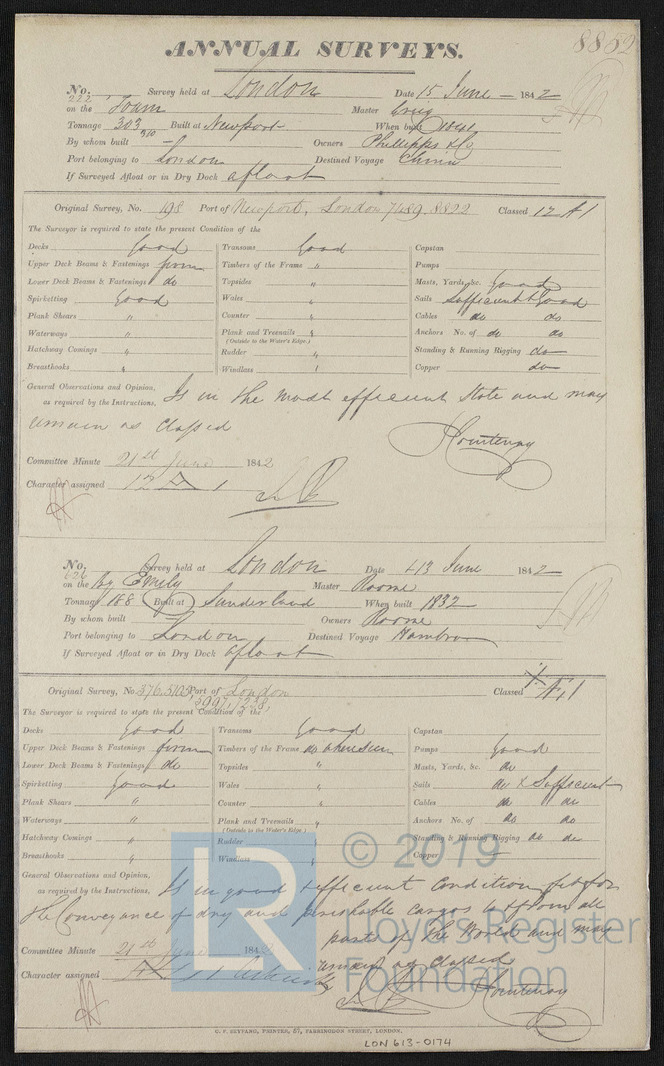 8852
ANNUAL SURVEYS.
No. 222 Survey held at London Date 15 June 1842
on the Foam Master Greig
Tonnage 303 310 Built at Newport When built 1841
By whom built — Owners Phillipps & Co
Port belonging to London Destined Voyage China
If Surveyed Afloat or in Dry Dock afloat
Original Survey, No. 198 Port of Newport, London 7489, 8822 Classed 12 A 1
The Surveyor is required to state the present Condition of the
Decks Good Transoms Good Capstan
Upper Deck Beams & Fastenings firm Timbers of the Frame " Pumps
Lower Deck Beams & Fastenings do Topsides " Masts, Yards, &c. Good
Spirketting Good Wales " Sails Sufficient & Good
Plank Shears " Counter " Cables do do
Waterways " Plank and Treenails " Anchors No. of do do
(Outside to the Water's Edge.)
Hatchway Comings " Rudder " Standing & Running Rigging do
Breasthooks " Windlass " Copper do
General Observations and Opinion, as required by the Instructions, Is in the most efficient State and may
remain as Classed
Courtenay
Committee Minute 21st June 1842
Character assigned 12 A 1
No. 626 Survey held at London Date 13 June 1842
on the Bg Emily Master Roome
Tonnage 188 Built at Sunderland When built 1832
By whom built — Owners Roome
Port belonging to London Destined Voyage Hambro
If Surveyed Afloat or in Dry Dock afloat
Original Survey, No. 376, 5105 Port of London Classed Æ 1
The Surveyor is required to state the present Condition of the
Decks Good Transoms Good Capstan
Upper Deck Beams & Fastenings firm Timbers of the Frame as when seen Pumps Good
Lower Deck Beams & Fastenings do Topsides " Masts, Yards, &c. do
Spirketting Good Wales " Sails do & Sufficient
Plank Shears " Counter " Cables do do
Waterways " Plank and Treenails " Anchors No. of do do
(Outside to the Water's Edge.)
Hatchway Comings " Rudder Standing & Running Rigging do do
Breasthooks " Windlass Copper
General Observations and Opinion, as required by the Instructions, Is in good & efficient Condition fit for
the Conveyance of dry and perishable cargos to & from all
parts of the World and may
remain as Classed
Courtenay
Committee Minute 21st June 1842
Character assigned
© 2019
LR
Lloyd's Register
Foundation
C. F. SEYFANG, PRINTER, 57, FARRINGDON STREET, LONDON.
LON 613-0174